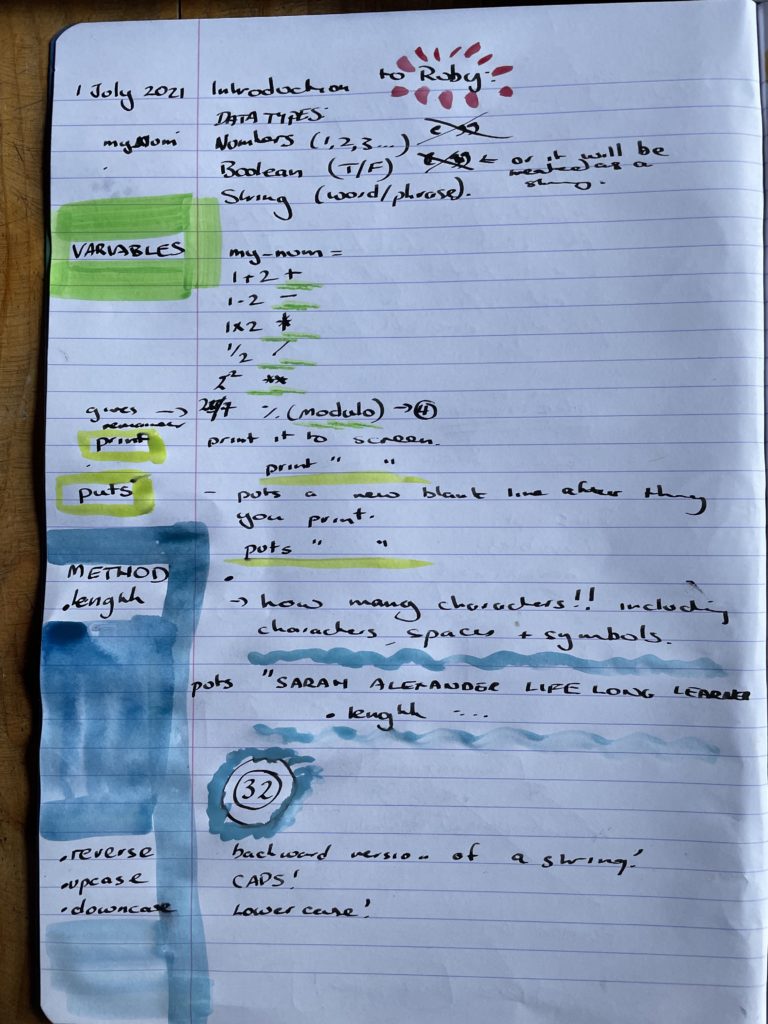 1 July 2021 Introduction to Ruby:
DATA TYPES:
my Num Numbers (1, 2, 3 ...)
Boolean (T/F) ← or it will be treated as a string.
String (word/phrase).
VARIABLES my-num =
1 + 2 +
1 - 2 -
1 x 2 *
1/2 /
2² **
gives remainder → 24/7 % (modulo) → 4
print print it to screen.
print " "
puts - puts a new blank line after thing
you print.
puts " "
METHOD
.length → how many characters!! including
characters, spaces + symbols.
puts "SARAH ALEXANDER LIFE LONG LEARNER
.length ....
32
.reverse backward version of a string!
.upcase CAPS!
.downcase Lower case!